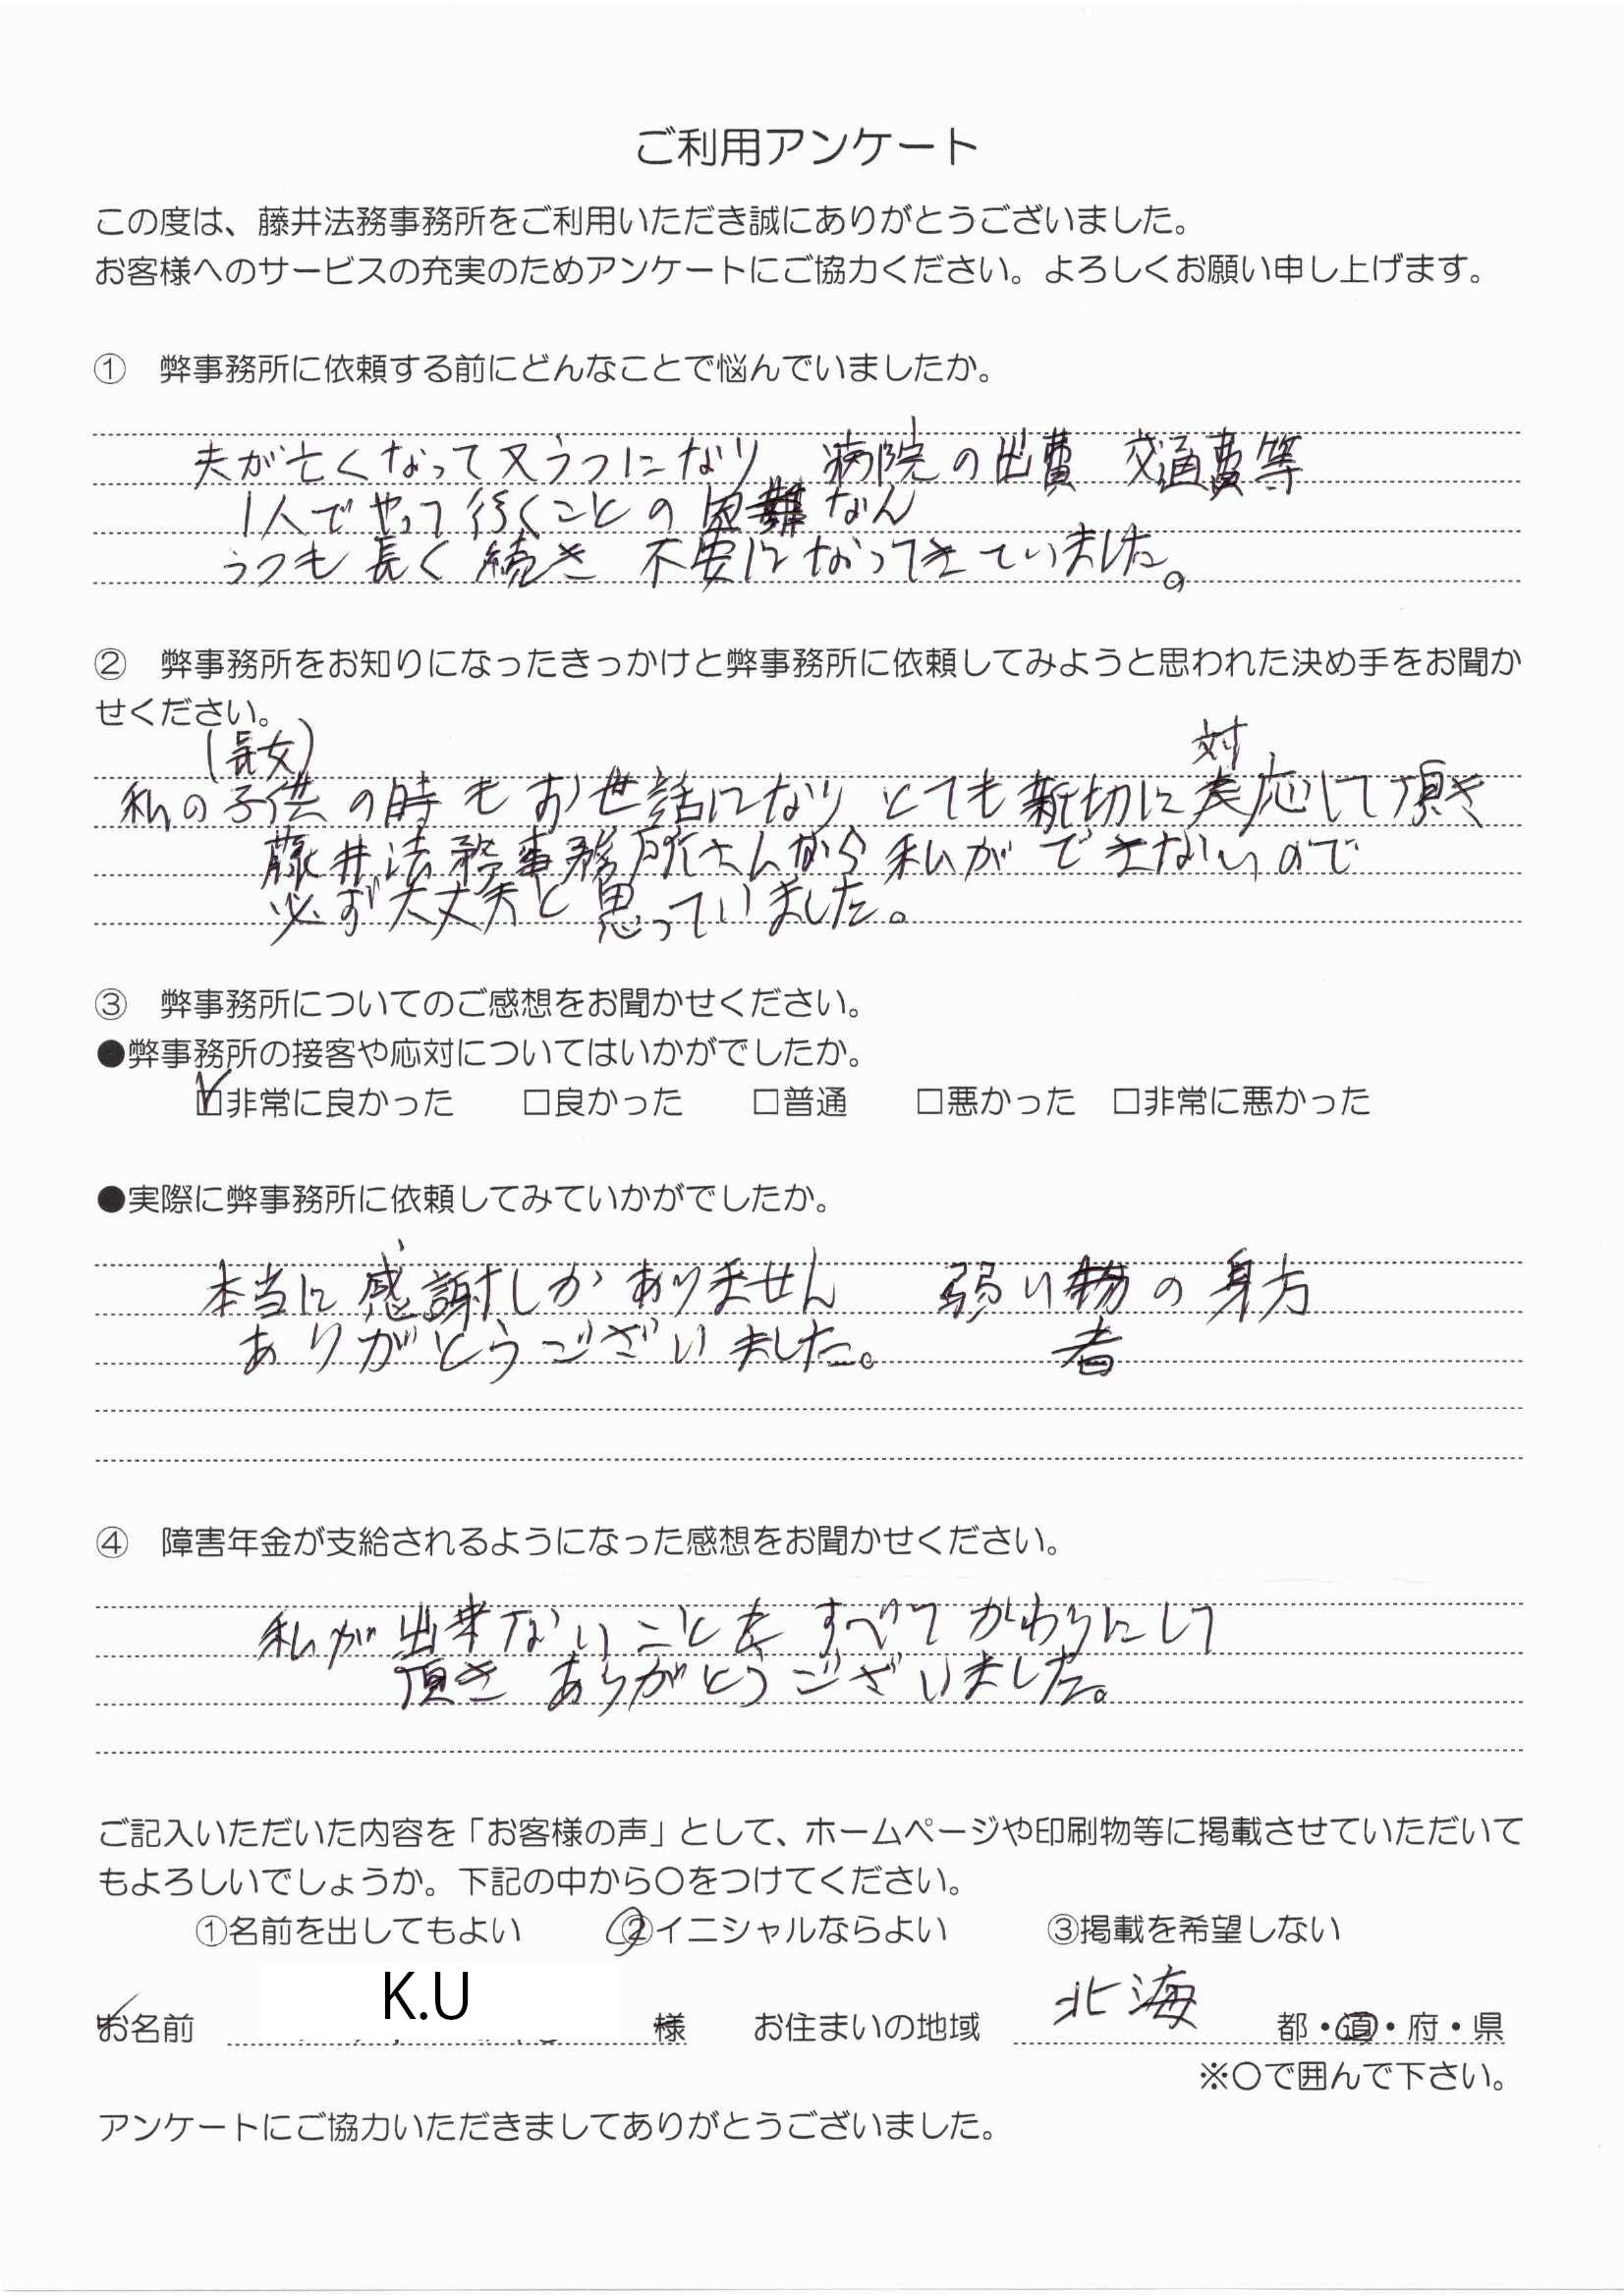 ご利用アンケート
この度は、藤井法務事務所をご利用いただき誠にありがとうございました。
お客様へのサービスの充実のためアンケートにご協力ください。よろしくお願い申し上げます。
① 弊事務所に依頼する前にどんなことで悩んでいましたか。
夫が亡くなって又うつになり 病院の出費 交通費等
1人でやって行くことの困難なん
うつも長く続き 不安になってきていました。
② 弊事務所をお知りになったきっかけと弊事務所に依頼してみようと思われた決め手をお聞か
せください。
(長女) 対
私の子供の時もお世話になり とても親切に応して頂き
藤井法務事務所さんなら私ができないので
必ず大丈夫と思っていました。
③ 弊事務所についてのご感想をお聞かせください。
●弊事務所の接客や応対についてはいかがでしたか。
☑非常に良かった □良かった □普通 □悪かった □非常に悪かった
●実際に弊事務所に依頼してみていかがでしたか。
本当に感謝しかありません 弱い物の身方
ありがとうございました。 者
④ 障害年金が支給されるようになった感想をお聞かせください。
私が出来ないことを すべてかわりにして
頂き ありがとうございました。
ご記入いただいた内容を「お客様の声」として、ホームページや印刷物等に掲載させていただいて
もよろしいでしょうか。下記の中から〇をつけてください。
①名前を出してもよい ②イニシャルならよい ③掲載を希望しない
お名前 K.U 様 お住まいの地域 北海 都・道・府・県
※〇で囲んで下さい。
アンケートにご協力いただきましてありがとうございました。